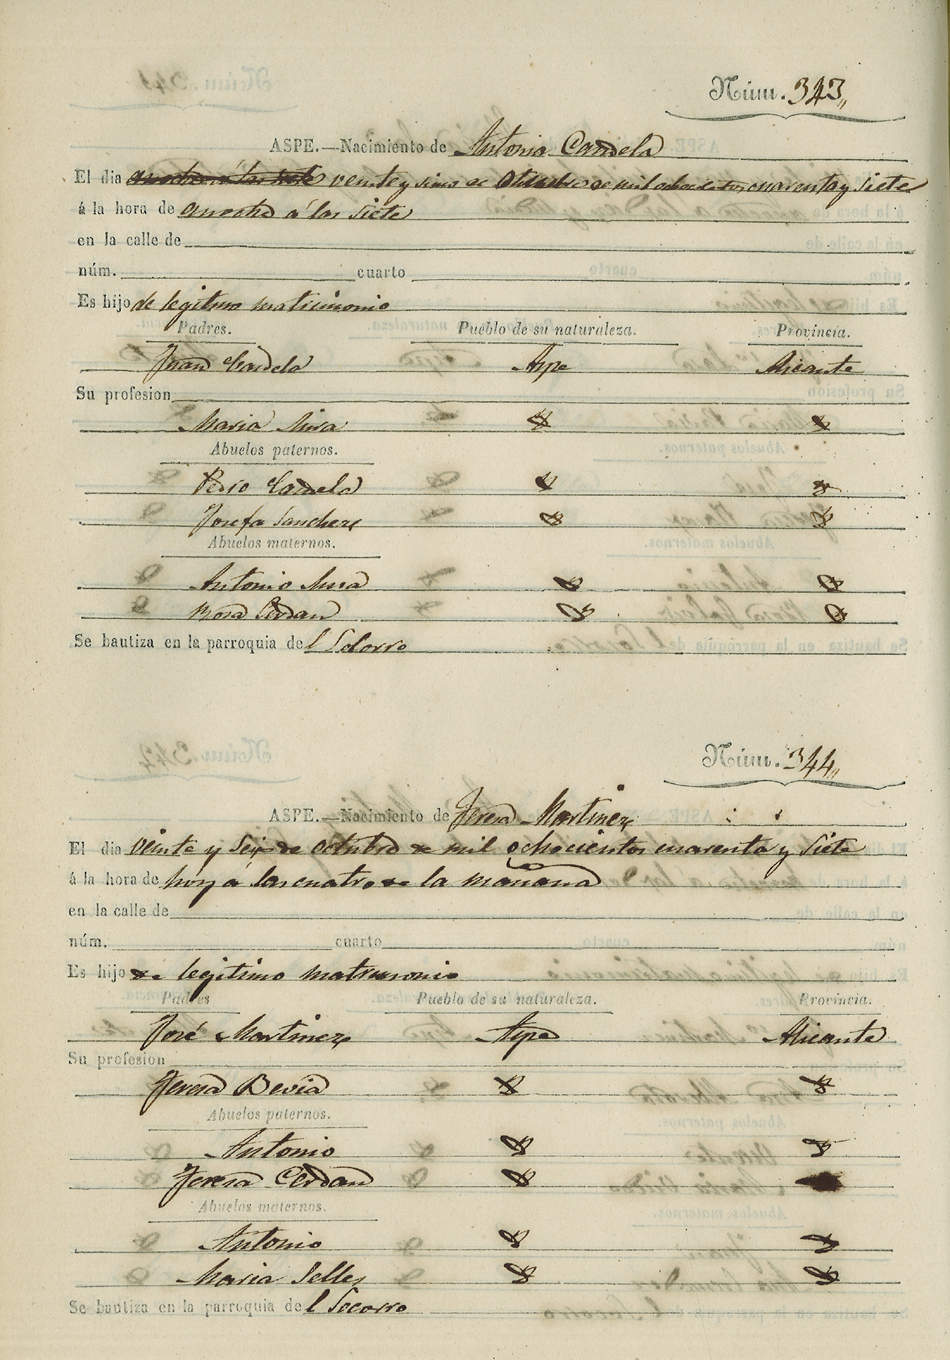 Núm. 343,,
ASPE.—Nacimiento de Antonia Candela
El dia anoche á las siete veinte y sinco de Octubre de mil ochocientos cuarenta y siete
á la hora de anoche á las siete
en la calle de
núm. cuarto
Es hijo de legitimo matrimonio
Padres. Pueblo de su naturaleza. Provincia.
Juan Candela Aspe Alicante
Su profesion
Maria Mira
Abuelos paternos.
Pedro Candela
Josefa Sanchez
Abuelos maternos.
Antonio Mira
Rosa Cerdan
Se bautiza en la parroquia del Socorro
Núm. 344,,
ASPE.—Nacimiento de Teresa Martinez
El dia veinte y seis de octubre de mil ochocientos cuarenta y siete
á la hora de hoy á las cuatro de la mañana
en la calle de
núm. cuarto
Es hijo de legitimo matrimonio
Padres Pueblo de su naturaleza. Provincia.
José Martinez Aspe Alicante
Su profesion
Teresa Bevia
Abuelos paternos.
Antonio
Teresa Cerdan
Abuelos maternos.
Antonio
Maria Selles
Se bautiza en la parroquia del Socorro